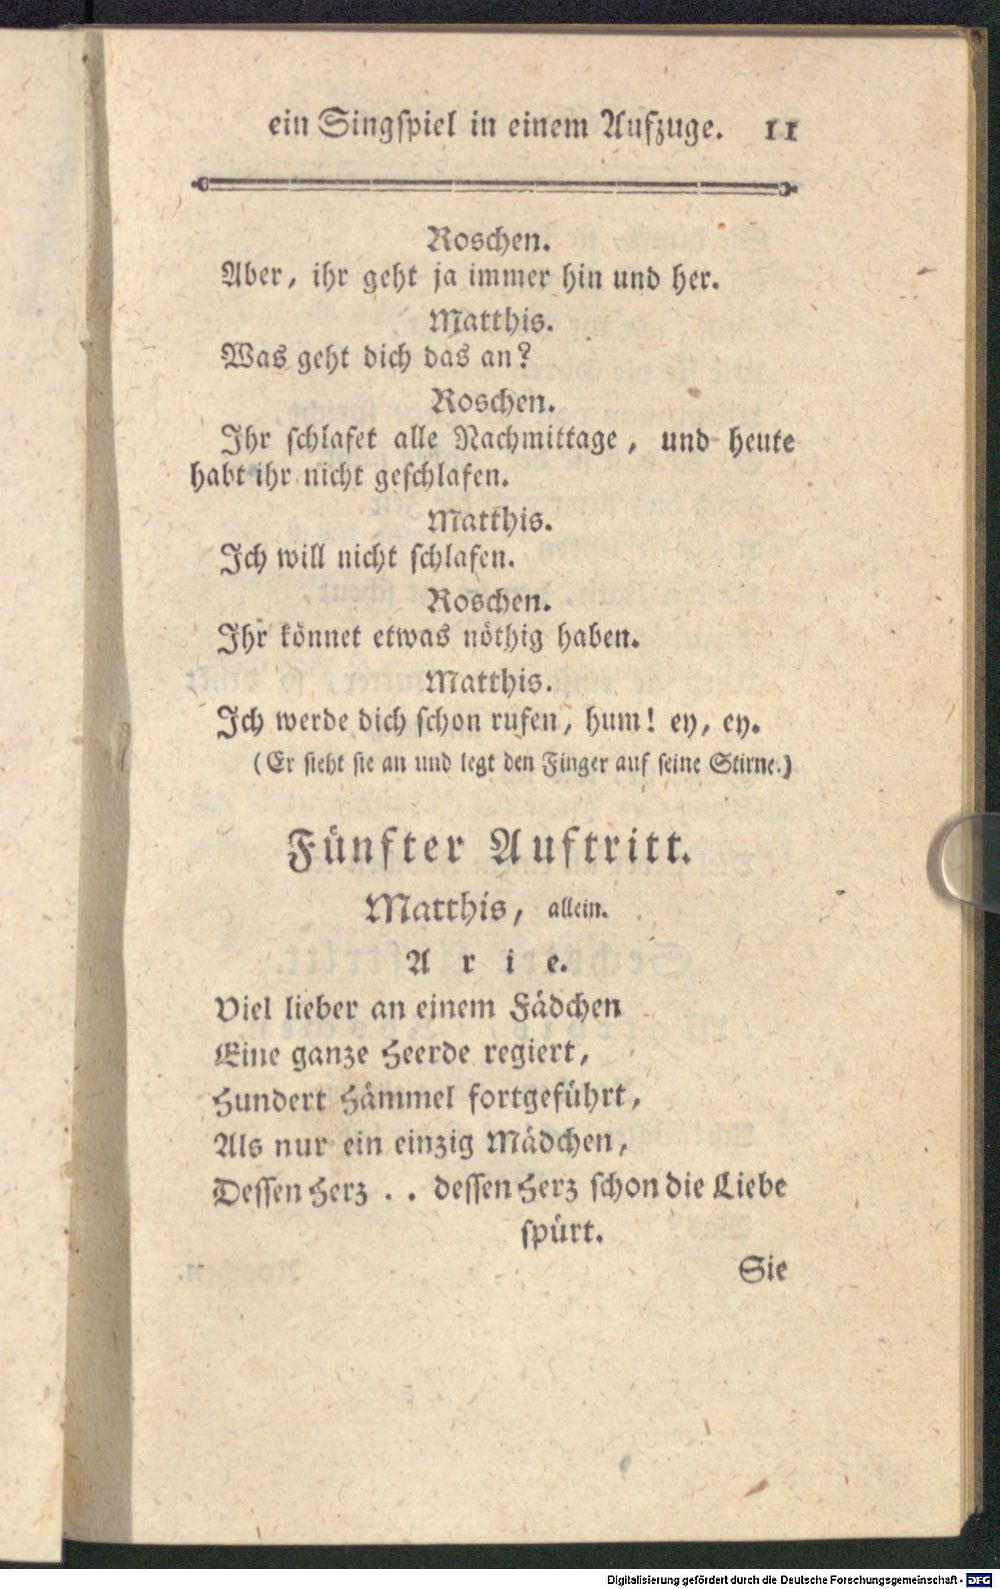 ein Singspiel in einem Aufzuge. 11
Roschen.
Aber, ihr geht ja immer hin und her.
Matthis.
Was geht dich das an?
Roschen.
Ihr schlafet alle Nachmittage, und heute
habt ihr nicht geschlafen.
Matthis.
Ich will nicht schlafen.
Roschen.
Ihr könnet etwas nöthig haben.
Matthis.
Ich werde dich schon rufen, hum! ey, ey.
(Er sieht sie an und legt den Finger auf seine Stirne.)
Fünfter Auftritt.
Matthis, allein.
Arie.
Viel lieber an einem Fädchen
Eine ganze Heerde regiert,
Hundert Hämmel fortgeführt,
Als nur ein einzig Mädchen,
Dessen Herz . . dessen Herz schon die Liebe
spürt.
Sie
Digitalisierung gefördert durch die Deutsche Forschungsgemeinschaft - DFG